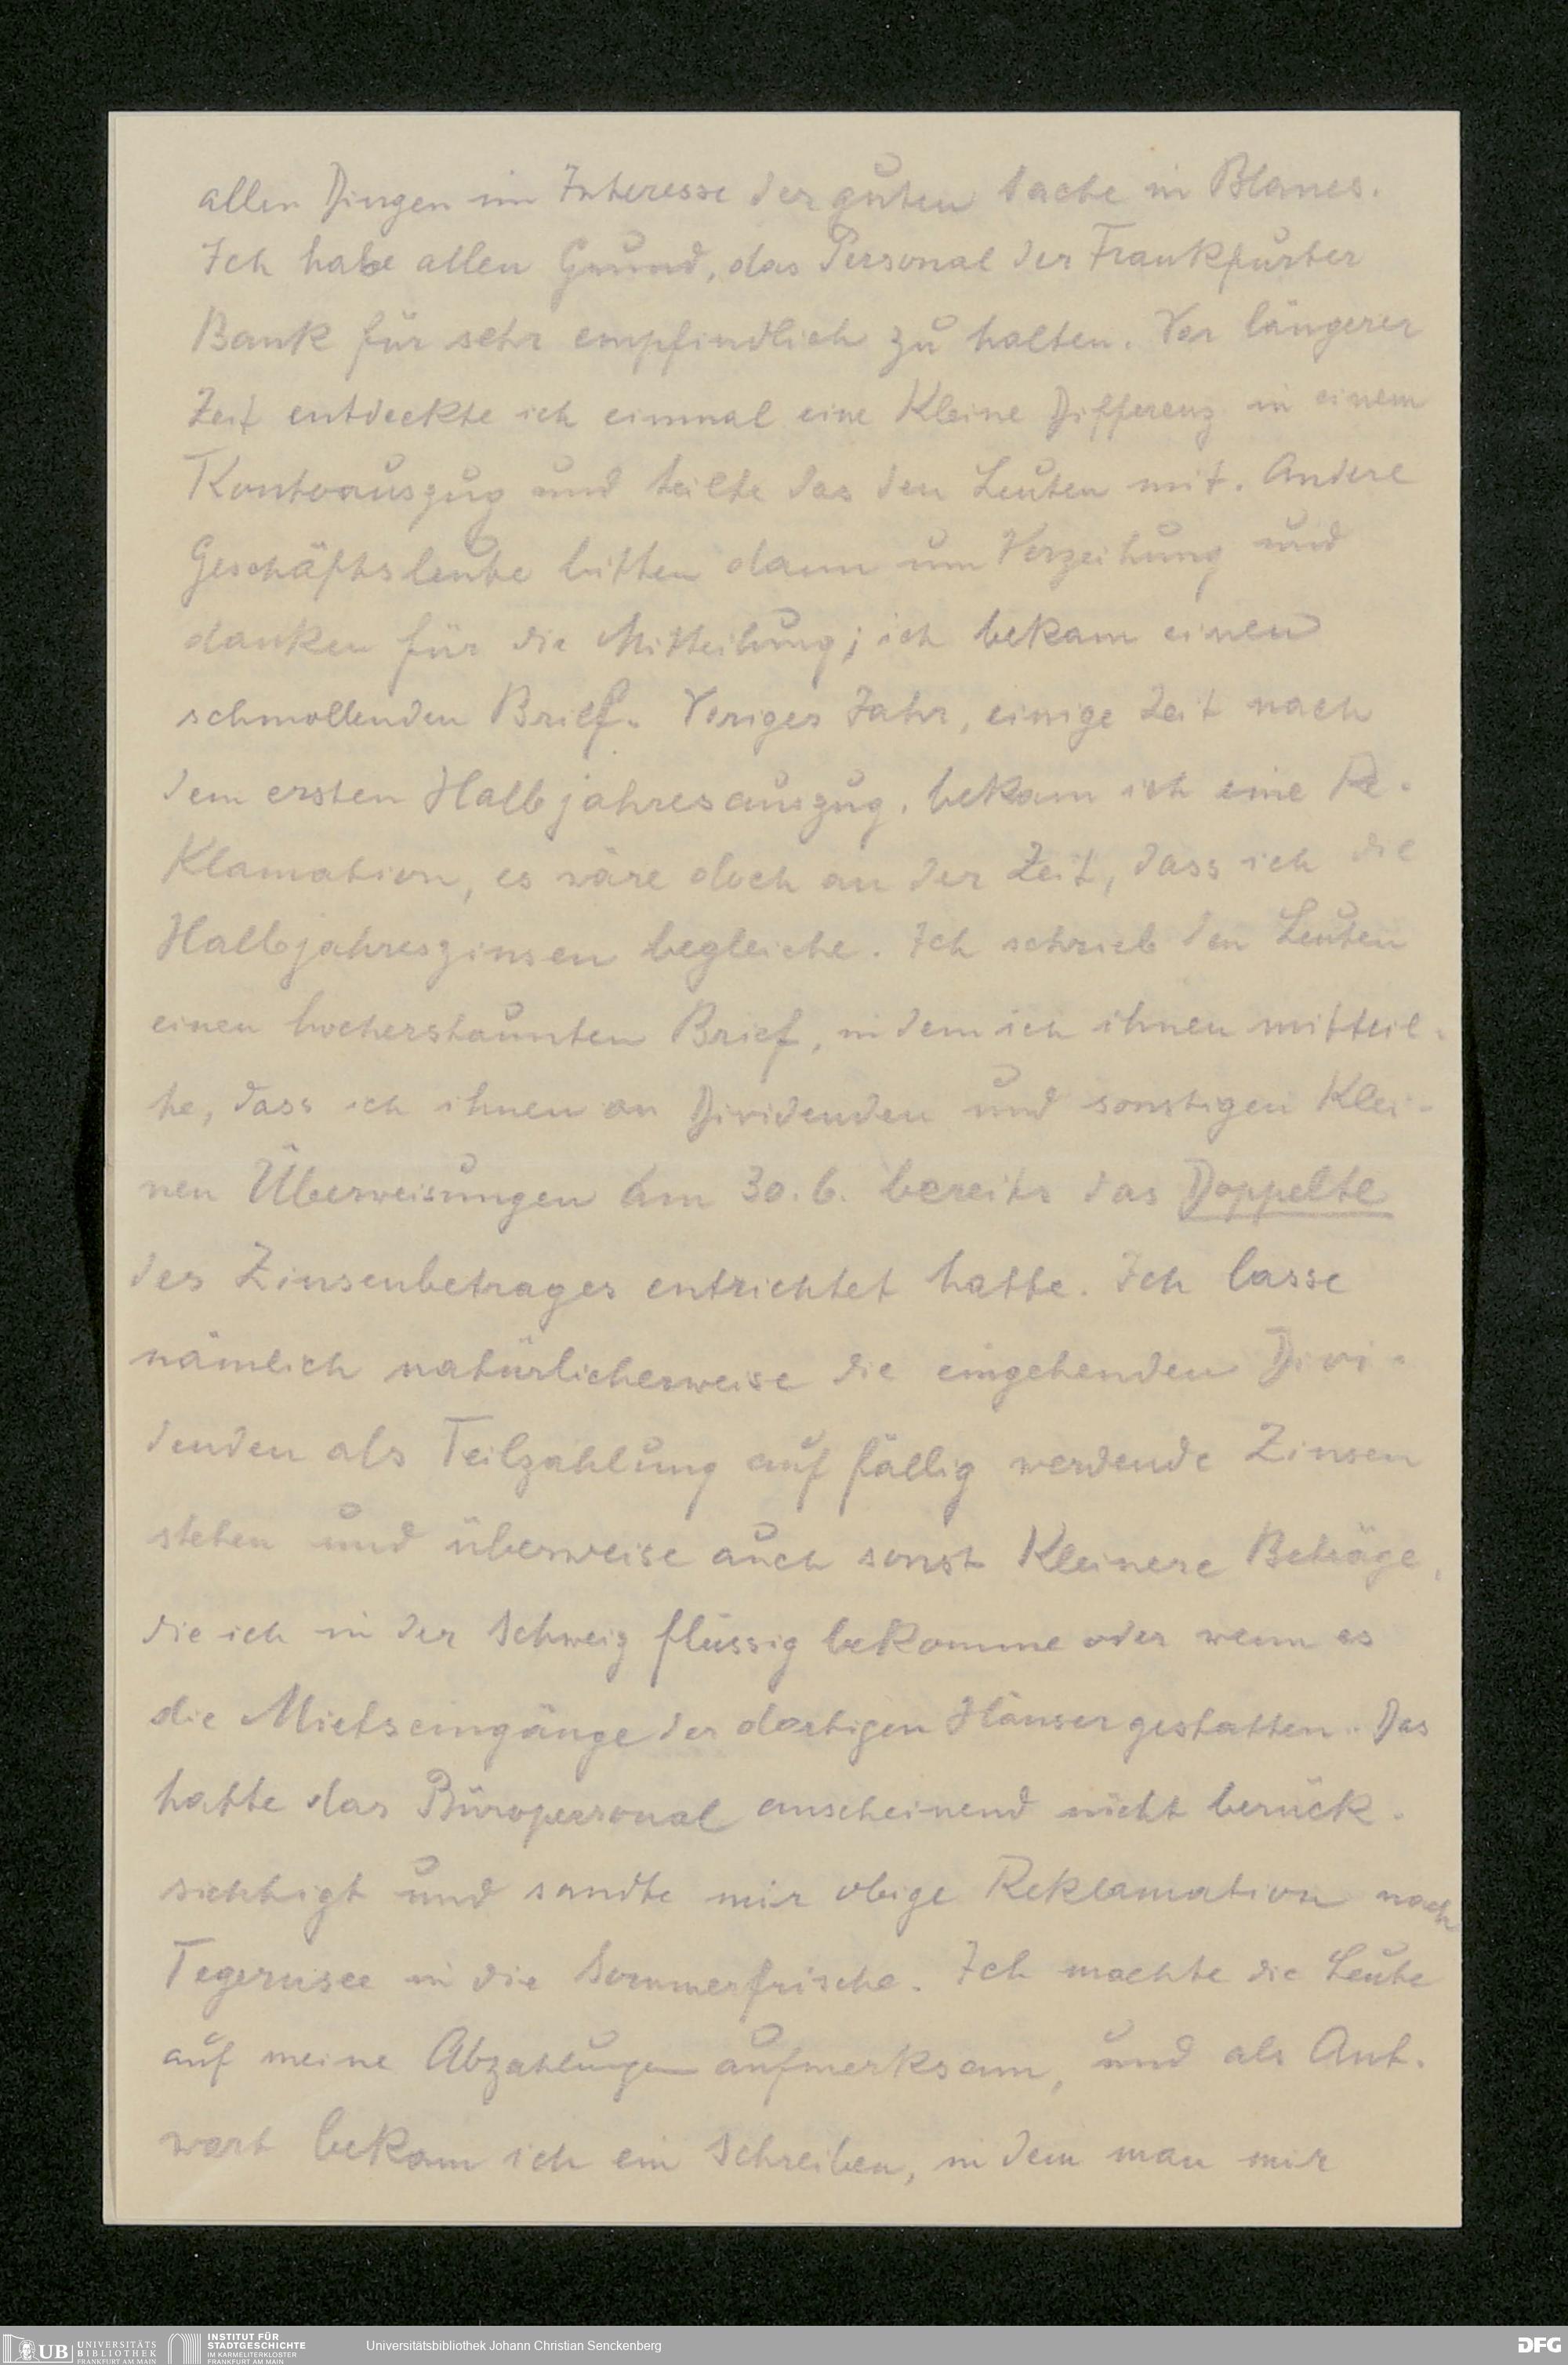 allen Dingen im Interesse der guten Sache in Blanes.
Ich habe allen Grund, das Personal der Frankfurter
Bank für sehr empfindlich zu halten. Vor längerer
Zeit entdeckte ich einmal eine kleine Differenz in einem
Kontoauszug und teilte das den Leuten mit. Andere
Geschäftsleute bitten dann um Verzeihung und
danken für die Mitteilung; ich bekam einen
schmollenden Brief. Voriges Jahr, einige Zeit nach
dem ersten Halbjahresauszug, bekam ich eine Re-
klamation, es wäre doch an der Zeit, dass ich die
Halbjahreszinsen begleiche. Ich schrieb den Leuten
einen hocherstaunten Brief, in dem ich ihnen mitteil-
te, dass ich ihnen an Dividenden und sonstigen klei-
nen Überweisungen am 30.6. bereits das Doppelte
des Zinsenbetrages entrichtet hatte. Ich lasse
nämlich natürlicherweise die eingehenden Divi-
denden als Teilzahlung auf fällig werdende Zinsen
stehen und überweise auch sonst kleinere Beträge,
die ich in der Schweiz flüssig bekomme oder wenn es
die Mietseingänge der dortigen Häuser gestatten. Das
hatte das Büropersonal anscheinend nicht berück-
sichtigt und sandte mir obige Reklamation nach
Tegernsee in die Sommerfrische. Ich machte die Leute
auf meine Abzahlungen aufmerksam, und als Ant-
wort bekam ich ein Schreiben, in dem man mir
UB UNIVERSITÄTS BIBLIOTHEK FRANKFURT AM MAIN
INSTITUT FÜR STADTGESCHICHTE IM KARMELITERKLOSTER FRANKFURT AM MAIN
Universitätsbibliothek Johann Christian Senckenberg
DFG